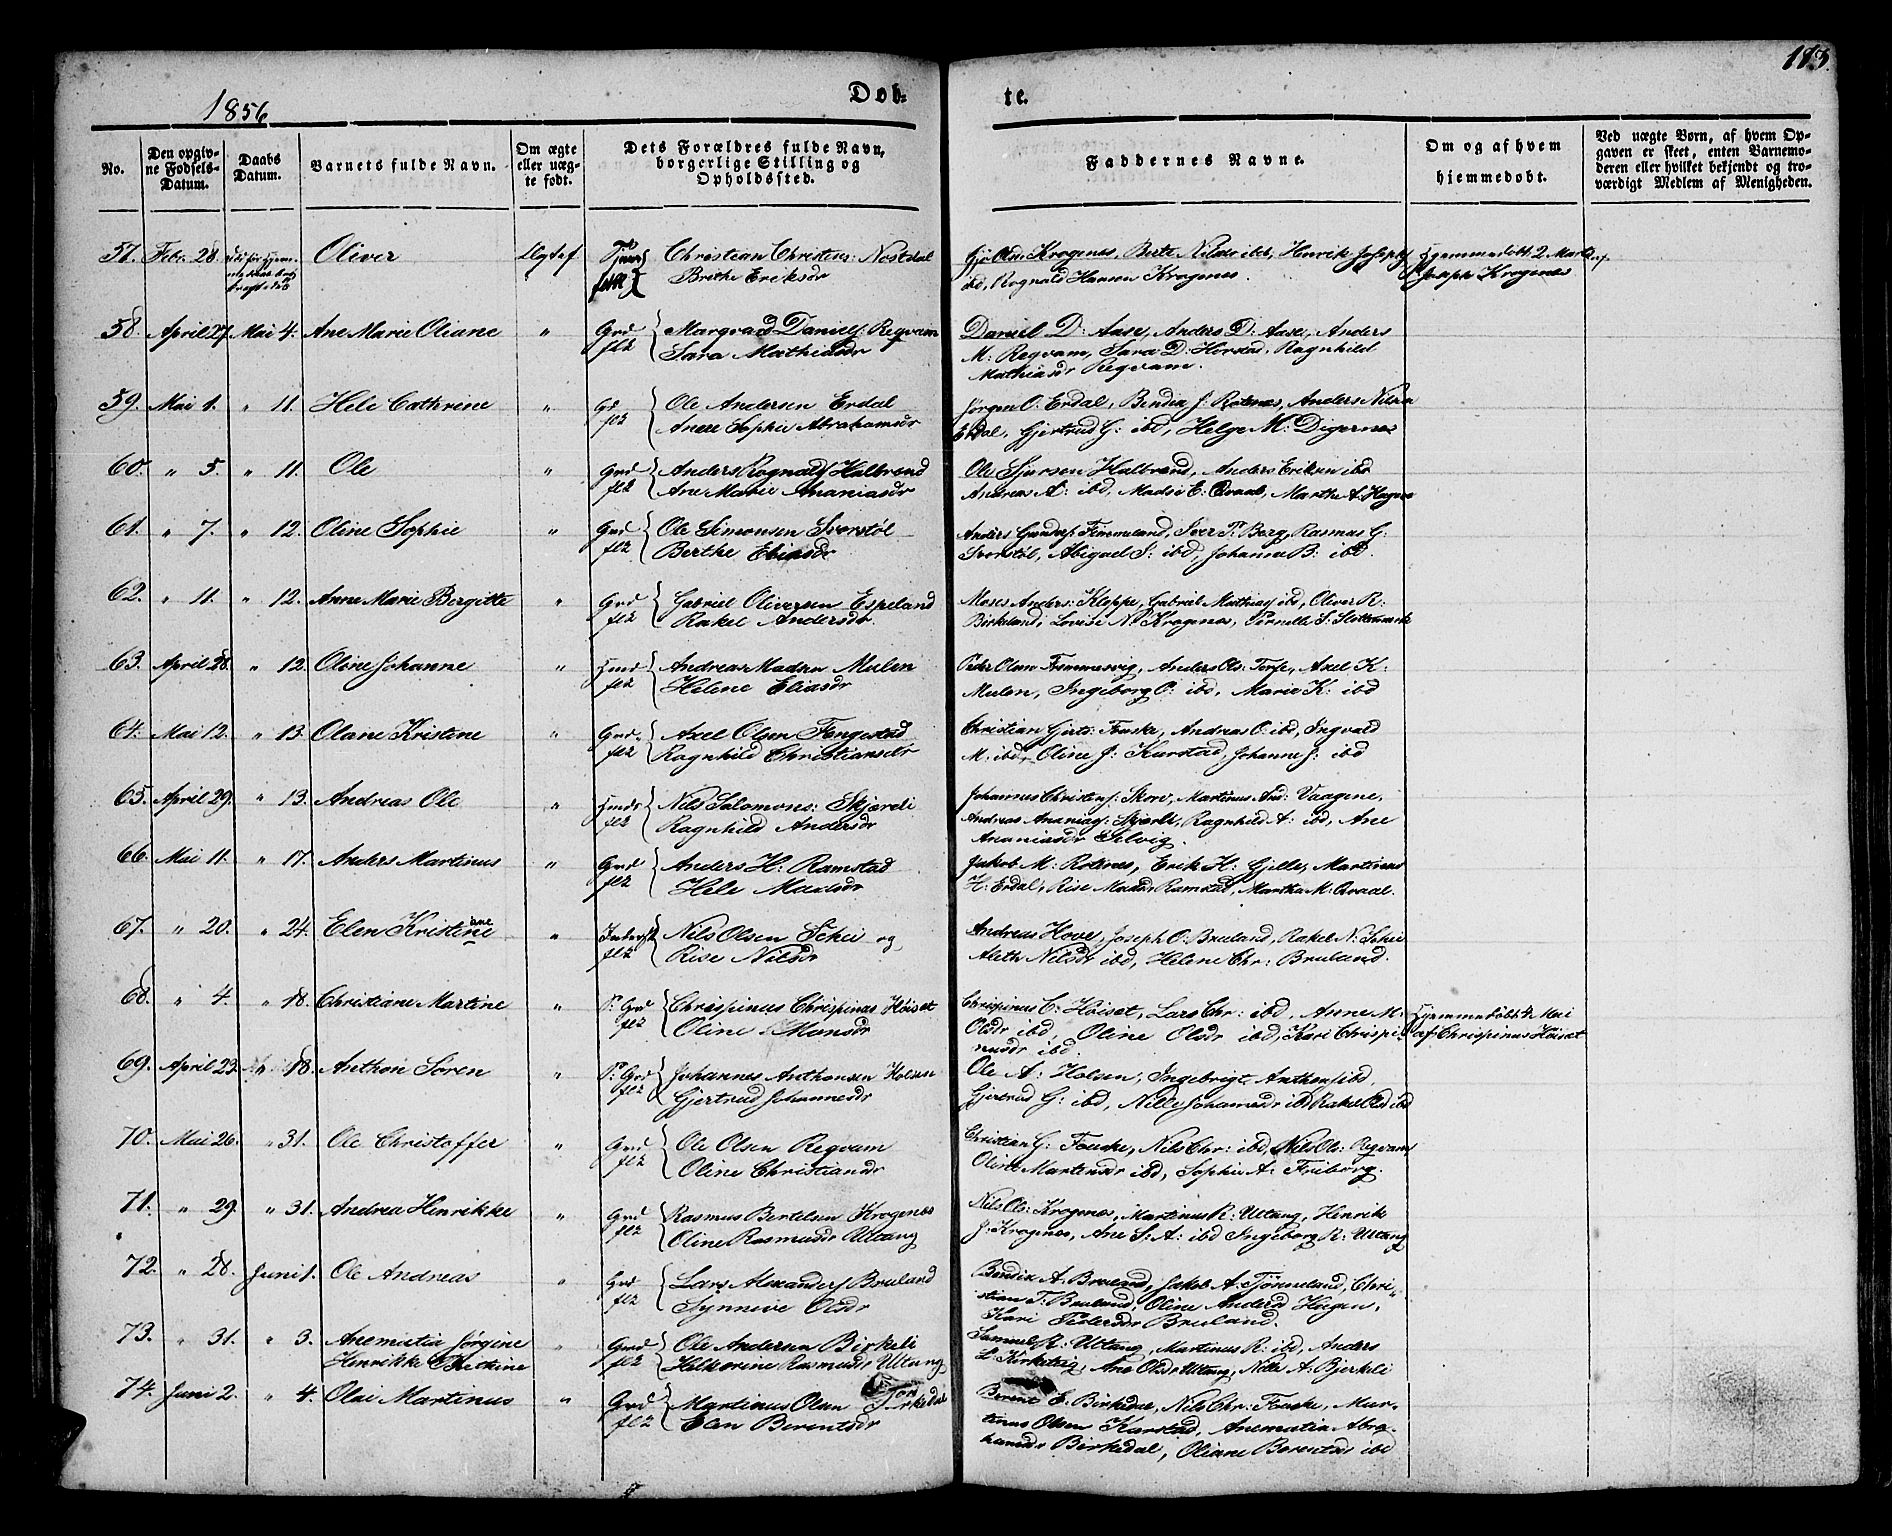 1856
Døb-
te.
113.
No.
Den opgivne Fødsels-Datum.
Daabs Datum.
Barnets fulde Navn.
Om ægte eller uægte født.
Dets Forældres fulde Navn, borgerlige Stilling og Opholdssted.
Faddernes Navne.
Om og af hvem hjemmedøbt.
Ved uægte Børn, af hvem Opgaven er skeet, enten Barnemoderen eller hvilket bekjendt og troværdigt Medlem af Menigheden.
57. Febr. 28. Oliver Ægtef Christian Christens: Nøstdal
Brithe Eriksdr
Olsen Krogenes, Berte Nilsdr ibd, Henrik Joseph
ibd, Rognald Hansen Krogenes.
Hjemmedøbt 2 Marts af
Joseph Krogenes
58. April 27. Mai 4. Ane Marie Oliane " Grd Margvard Daniels: Regvam
flk Sara Mathiasdr
Daniel D: Aase, Anders D: Aase, Anders
M: Regvam, Sara D: Horstad, Ragnhild
Mathiasdr Regvam.
59. Mai 1. " 11. Hele Cathrine " Gd Ole Andersen Erdal
flk Anne Sophie Abrahamsdr
Jørgen O. Erdal, Bendix J: Rotenes, Anders Nilsen
Erdal, Gjertrud G: ibd, Helge M: Digernes
60. " 5. " 11. Ole " Grd Anders Rognalds Halbrend
flk Ane Marie Ananiasdr
Ole Sjursen Halbrend, Anders Eriksen ibd
Andreas A: ibd, Madsi E: Qvaal, Marthe A. Hagen
61. " 7. " 12. Oline Sophie " Grd Ole Simonsen Svorstøl
flk Berthe Eliasdr
Anders Gunders: Fimmeland, Sver P: Berg, Rasmus G:
Svorstøl, Abigael S: ibd, Johanna B: ibd.
62. " 11. " 12. Anne Marie Bergitte " Grd Gabriel Oliversen Espeland
flk Rakel Andersdr
Moses Anders: Kleppe, Gabriel Mathias ibd, Oliver R:
Birkeland, Lovise N: Krogenes, Pernelle S. Slottemark
63. April 28. " 12. Oline Johanne " Hmd Andreas Madsen Mulen
flk Helene Eliasdr
Peder Olsen Femmesvig, Anders Ols: Torfe, Axel K.
Mulen, Ingeborg O: ibd, Marie K: ibd
64. Mai 12. " 13. Olane Kristine " Grd. Axel Olsen Fengestad
flk Ragnhild Christiansdr
Christian Gjerts: Fouske, Andreas O: ibd, Ingvald
M: ibd, Oline J: Karstad, Johanne J: ibd
65. April 29. " 13. Andreas Ole " Hmds Nils Salomons: Skjærli
flk Ragnhild Andersdr
Johannes Christens: Skorv, Martinus And: Vaagene,
Andreas Ananias: Skjærli, Ragnhild A: ibd, Ane
Ananiasdr Solvig.
66. Mai 11. " 17. Anders Martinus " Grd Anders H: Ramstad
flk Hele Madsdr
Jakob M: Rotenes, Erik H: Gjelle, Martinus
H: Erdal, Rise Madsdr Ramstad, Martha M: Qvaal.
67. " 20. " 24. Elen Kristine ane " Inderst Nils Olsen Schei og
flk Rise Nilsdr
Andreas Hove, Joseph O: Bruland, Rakel N: Schei
Aleth Nilsdr ibd, Helene Chr: Bruland.
68. " 4. " 18. Christiane Martine " P: Grd Chrispinus Chrispinus Høiset
flk Oline Monsdr
Chrispinus C: Høiset, Lars Chr: ibd, Anne M:
Olsdr ibd, Oline Olsdr ibd, Kari Chrispi-
nusdr ibd.
Hjemmedøbt 4 Mai
af Chrispinus Høiset
69. April 23. " 18. Anthon Søren " P: Grd Johannes Anthonsen Holsen
flk Gjertrud Johannesdr
Ole A: Holsen, Ingebrigt Anthons ibd,
Gjertrud G: ibd, Nille Johannesdr ibd Rakel Olsd ibd
70. Mai 26. " 31. Ole Christoffer " Grd Ole Olsen Regvam
flk Oline Christiansdr
Christian G: Fouske, Nils Chr: ibd, Nils Ols: Regvam
Oline Martensdr ibd, Sophie A: Friborg.
71. " 29. " 31. Andrea Henrikke " Grd Rasmus Bertelsen Krogenes
flk Oline Rasmusdr Ultang
Nils Ols: Krogenes, Martinus R: Ultang, Henrik
J: Krogenes, Ane S. A: ibd Ingeborg R: Ultang
72. " 28. Juni 1. Ole Andreas " Grd Lars Alexanders Bruland
flk Synneve Olsdr
Bendix A. Bruland, Jakob A: Tjønneland, Chri-
stian T: Bruland, Oline Andersd Hagen,
Kari Pedersdr Bruland.
73. " 31. " 3. Anemattia Jørgine " Grd Ole Andersen Birkeli
Henrikke flk Helkerine Rasmusdr Ultang
Samuel R: Ultang, Martinus R: ibd, Anders
L: Kirketeig, Ane Olsdr Ultang, Nille A. Bjerkeli
74. Juni 2. " 4. Olai Martinus " Grd Martinus Olsen
flk Elen Berentsdr
Berent E. Birkedal, Nils Chr: Fouske, Mar-
tinus Olsen Karstad, Anemattia Abra-
hamsdr Birkedal, Oliane Berentsdr ibd